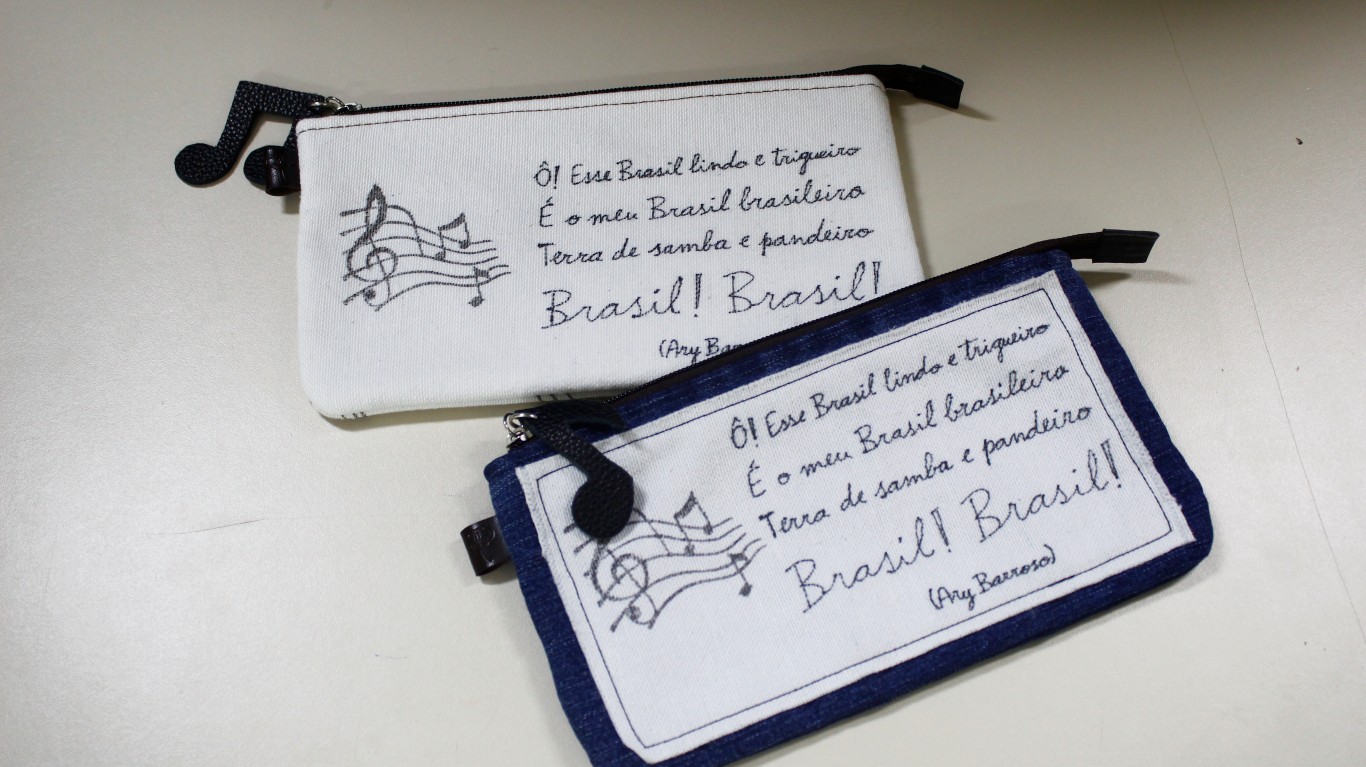 Ô! Esse Brasil lindo e trigueiro
É o meu Brasil brasileiro
Terra de samba e pandeiro
Brasil! Brasil!
(Ary
Ô! Esse Brasil lindo e trigueiro
É o meu Brasil brasileiro
Terra de samba e pandeiro
Brasil! Brasil!
(Ary Barroso)